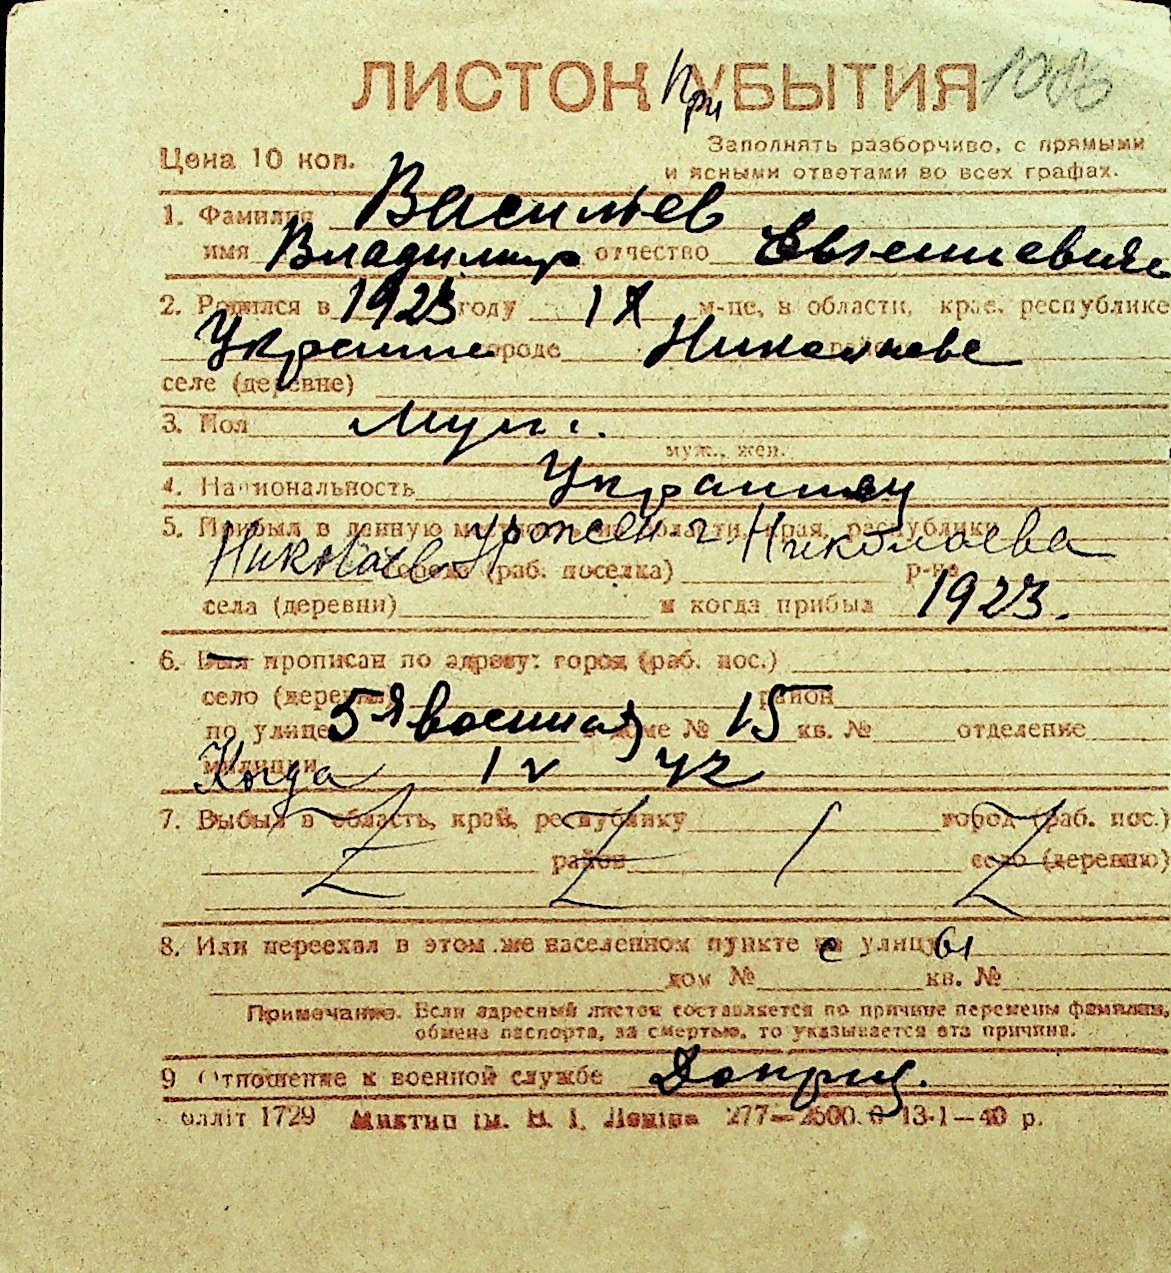 ЛИСТОК При УБЫТИЯ
Цена 10 коп.
Заполнять разборчиво, с прямыми
и ясными ответами во всех графах.
1. Фамилия Васильев
имя Владимир отчество Евгениевич
2. Родился в 1923 году IX м-це, в области, крае, республике
Украине городе Николаеве
селе (деревне)
3. Пол муж.
муж., жен.
4. Национальность Украинец
5. Прибыл в данную местность из области, края, республики
Николаев Урожен г. Николаева
города (раб. поселка) р-на
села (деревни) и когда прибыл 1923.
6. Был прописан по адресу: город (раб. пос.)
село (деревня) район
по улице 5я военная доме № 15 кв. № отделение
милиции Когда IV 42
7. Выбыл в область, край, республику город (раб. пос.)
район село (деревню)
8. Или переехал в этом же населенном пункте с улицы
дом № кв. №
Примечание. Если адресный листок составляется по причине перемены фамилии,
обмена паспорта, за смертью, то указывается эта причина.
9 Отношение к военной службе Доприз.
олліт 1729 Миктип ім. В. І. Леніна 277—2500. 13-1—40 р.